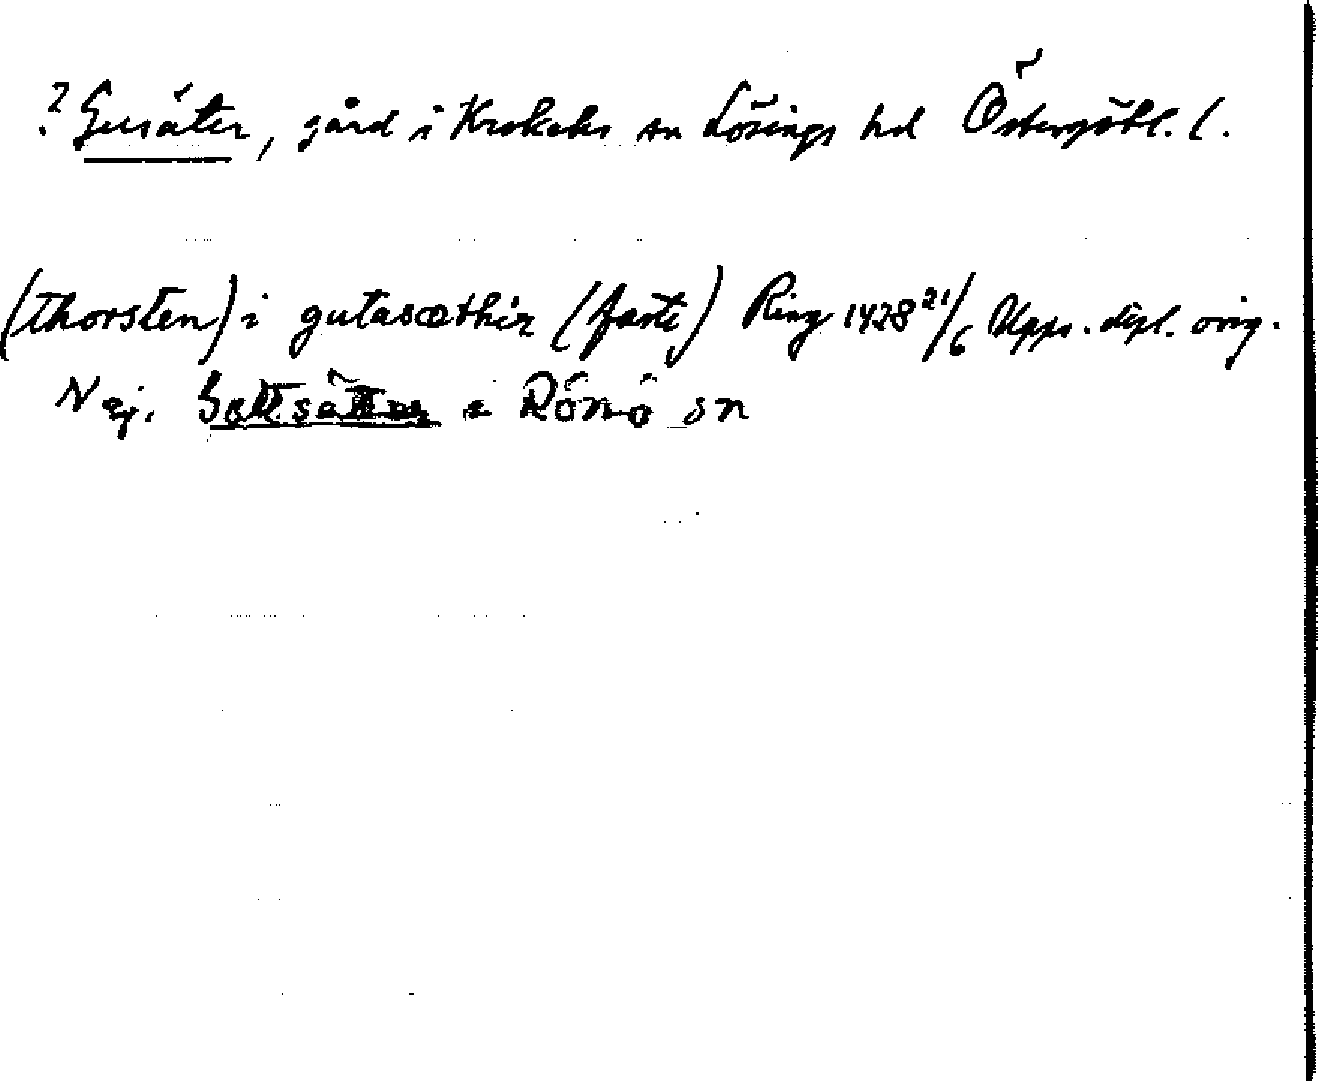 ? Gusäter, gård i Krokeks sn Lösings hd Östergötl. l.
(thorsten) i gutasæthir (faste) Ring 1428 21/6 Upps. dipl. orig.
Nej. i Rönö sn